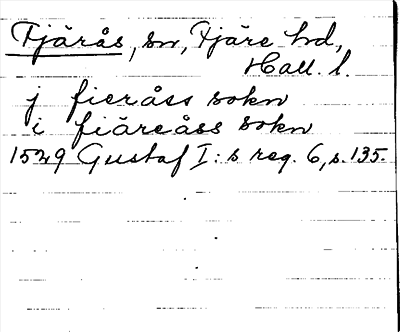 Fjärås, sn, Fjäre hd,
Hall. l.
j fieråss sokn
i fiäreåss sokn
1529 Gustaf I:s reg. 6, s. 135.